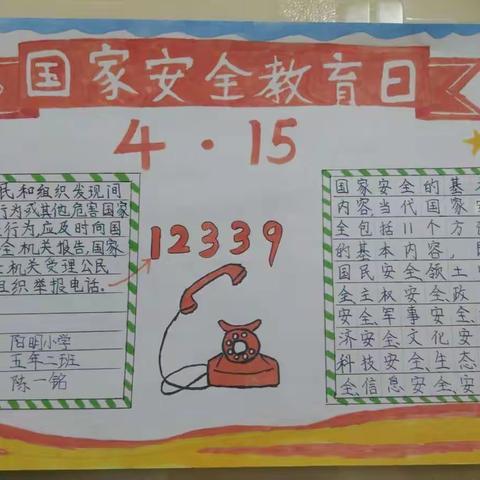 国家安全教育日
4·15
民和组织发现间
行为或其他危害国家
行为,应及时向国
全机关报告,国家
机关受理公民
组织举报电话。
阳明小学
五年二班
陈一铭
12339
国家安全的基
内容,当代国家
全包括11个方
的基本内容,
国民安全、领土
全、主权安全、政
安全、军事安全、
济安全、文化安
科技安全、生态
全、信息安全、安